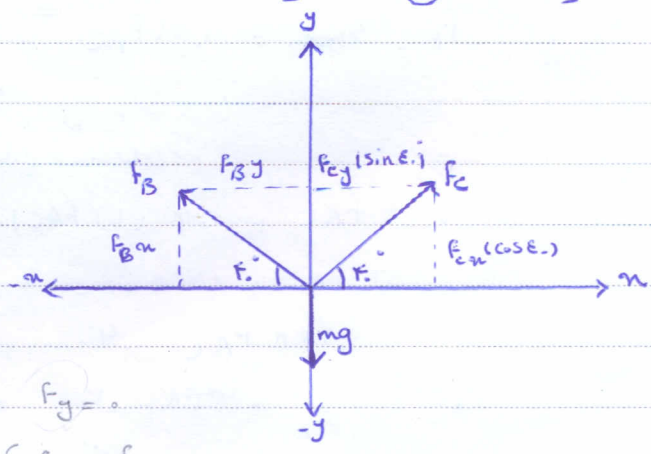 y
F_B y F_cy (sin ۴۰°)
F_B F_c
F_B x F_cx (cos ۴۰)
۴۰° ۴۰°
-x x
mg
F_y = ۰
-y